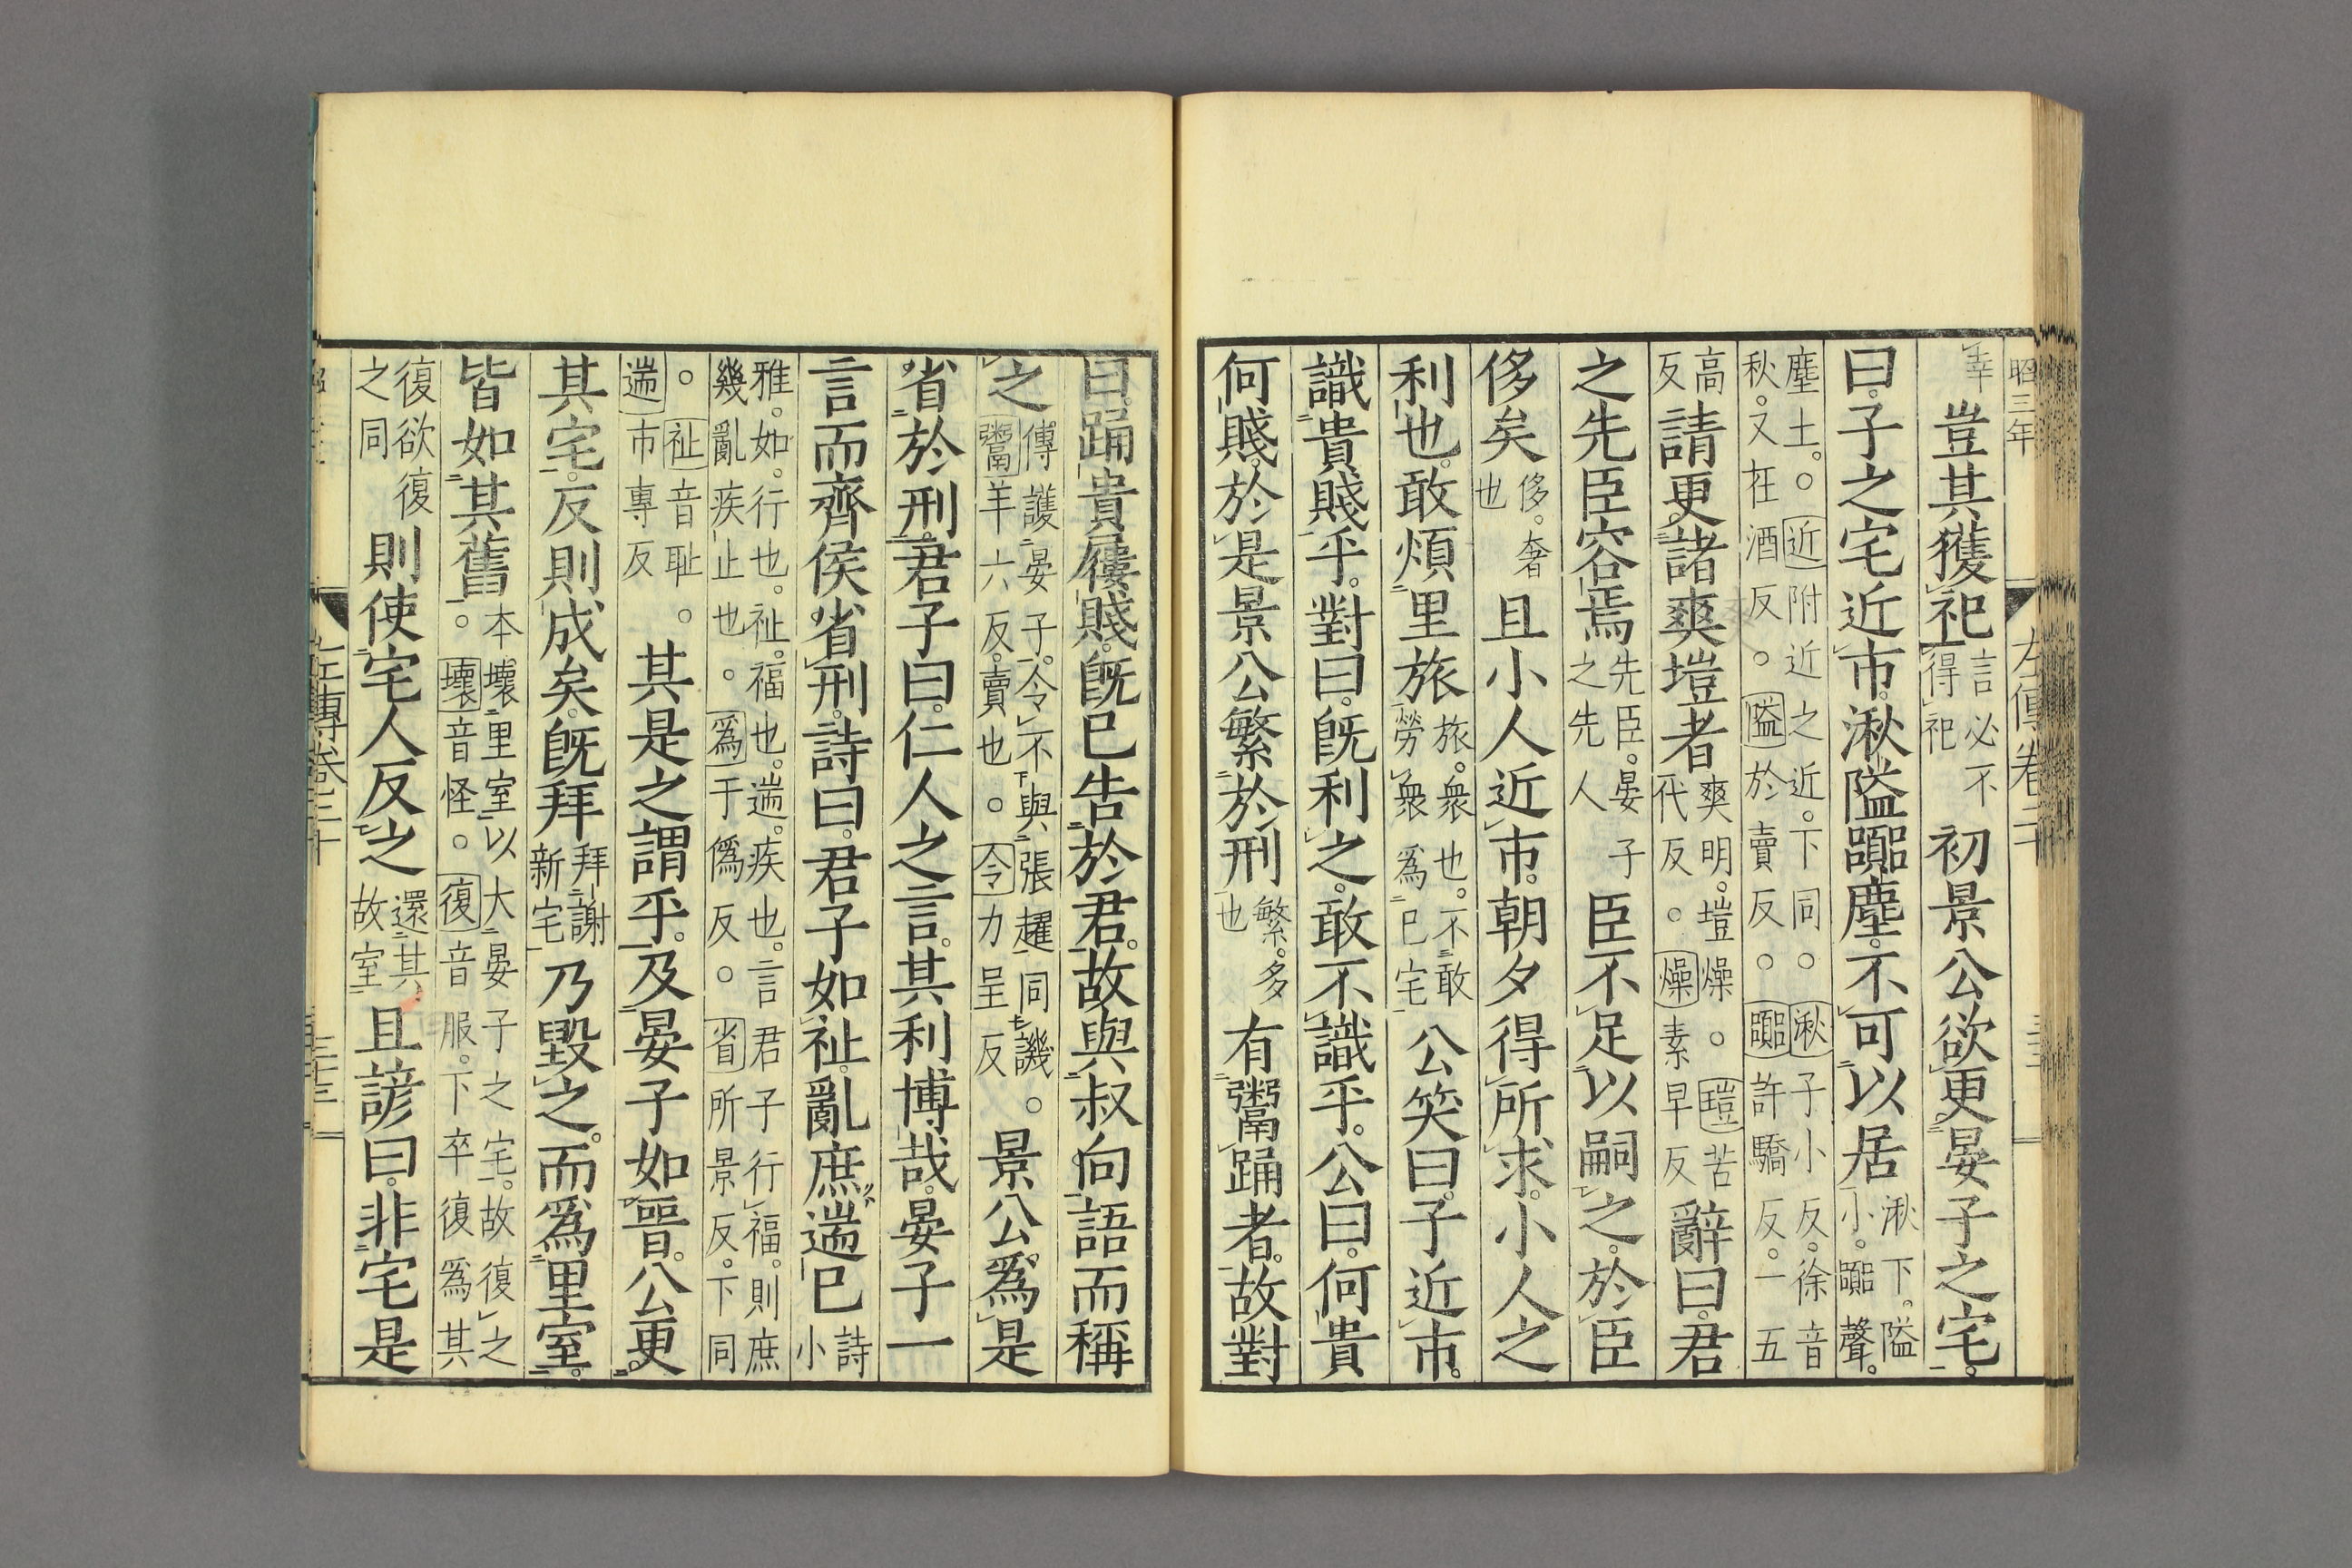 昭三年　左傳卷二十
幸豈其獲祀言必不得祀初景公欲更晏子之宅。
曰。子之宅近市。湫隘嚻塵。不可以居湫下。隘小。嚻聲。
塵土。○近附近之近。下同。○湫子小反。徐音秋。又在酒反。○隘於賣反。○嚻許驕反。一五
高反請更諸爽塏者爽明。塏燥。○塏苦代反。○燥素早反辭曰。君
之先臣容焉先臣。晏子之先人臣不足以嗣之。於臣
侈矣侈。奢也且小人近市。朝夕得所求。小人之
利也。敢煩里旅旅。衆也。不敢勞衆爲己宅公笑曰。子近市。
識貴賤乎。對曰。既利之。敢不識乎。公曰。何貴
何賤。於是景公繁於刑繁。多也有鬻踊者。故對
曰。踊貴屨賤。既已告於君。故與叔向語而稱
之傳護晏子。令不與張趯同譏。○鬻羊六反。賣也。○令力呈反景公爲是
省於刑。君子曰。仁人之言。其利博哉。晏子一
言而齊侯省刑。詩曰。君子如祉。亂庶遄已詩小
雅。如。行也。祉。福也。遄。疾也。言君子行福。則庶幾亂疾止也。○爲于僞反。○省所景反。下同
。祉音耻。○遄市專反其是之謂乎。及晏子如晉。公更
其宅。反則成矣。既拜拜謝新宅乃毀之。而爲里室。
皆如其舊本壞里室以大晏子之宅。故復之。○壞音怪。○復音服。下卒復爲其
復欲復之同則使宅人反之還其故室且諺曰。非宅是
左傳卷二十　三十三